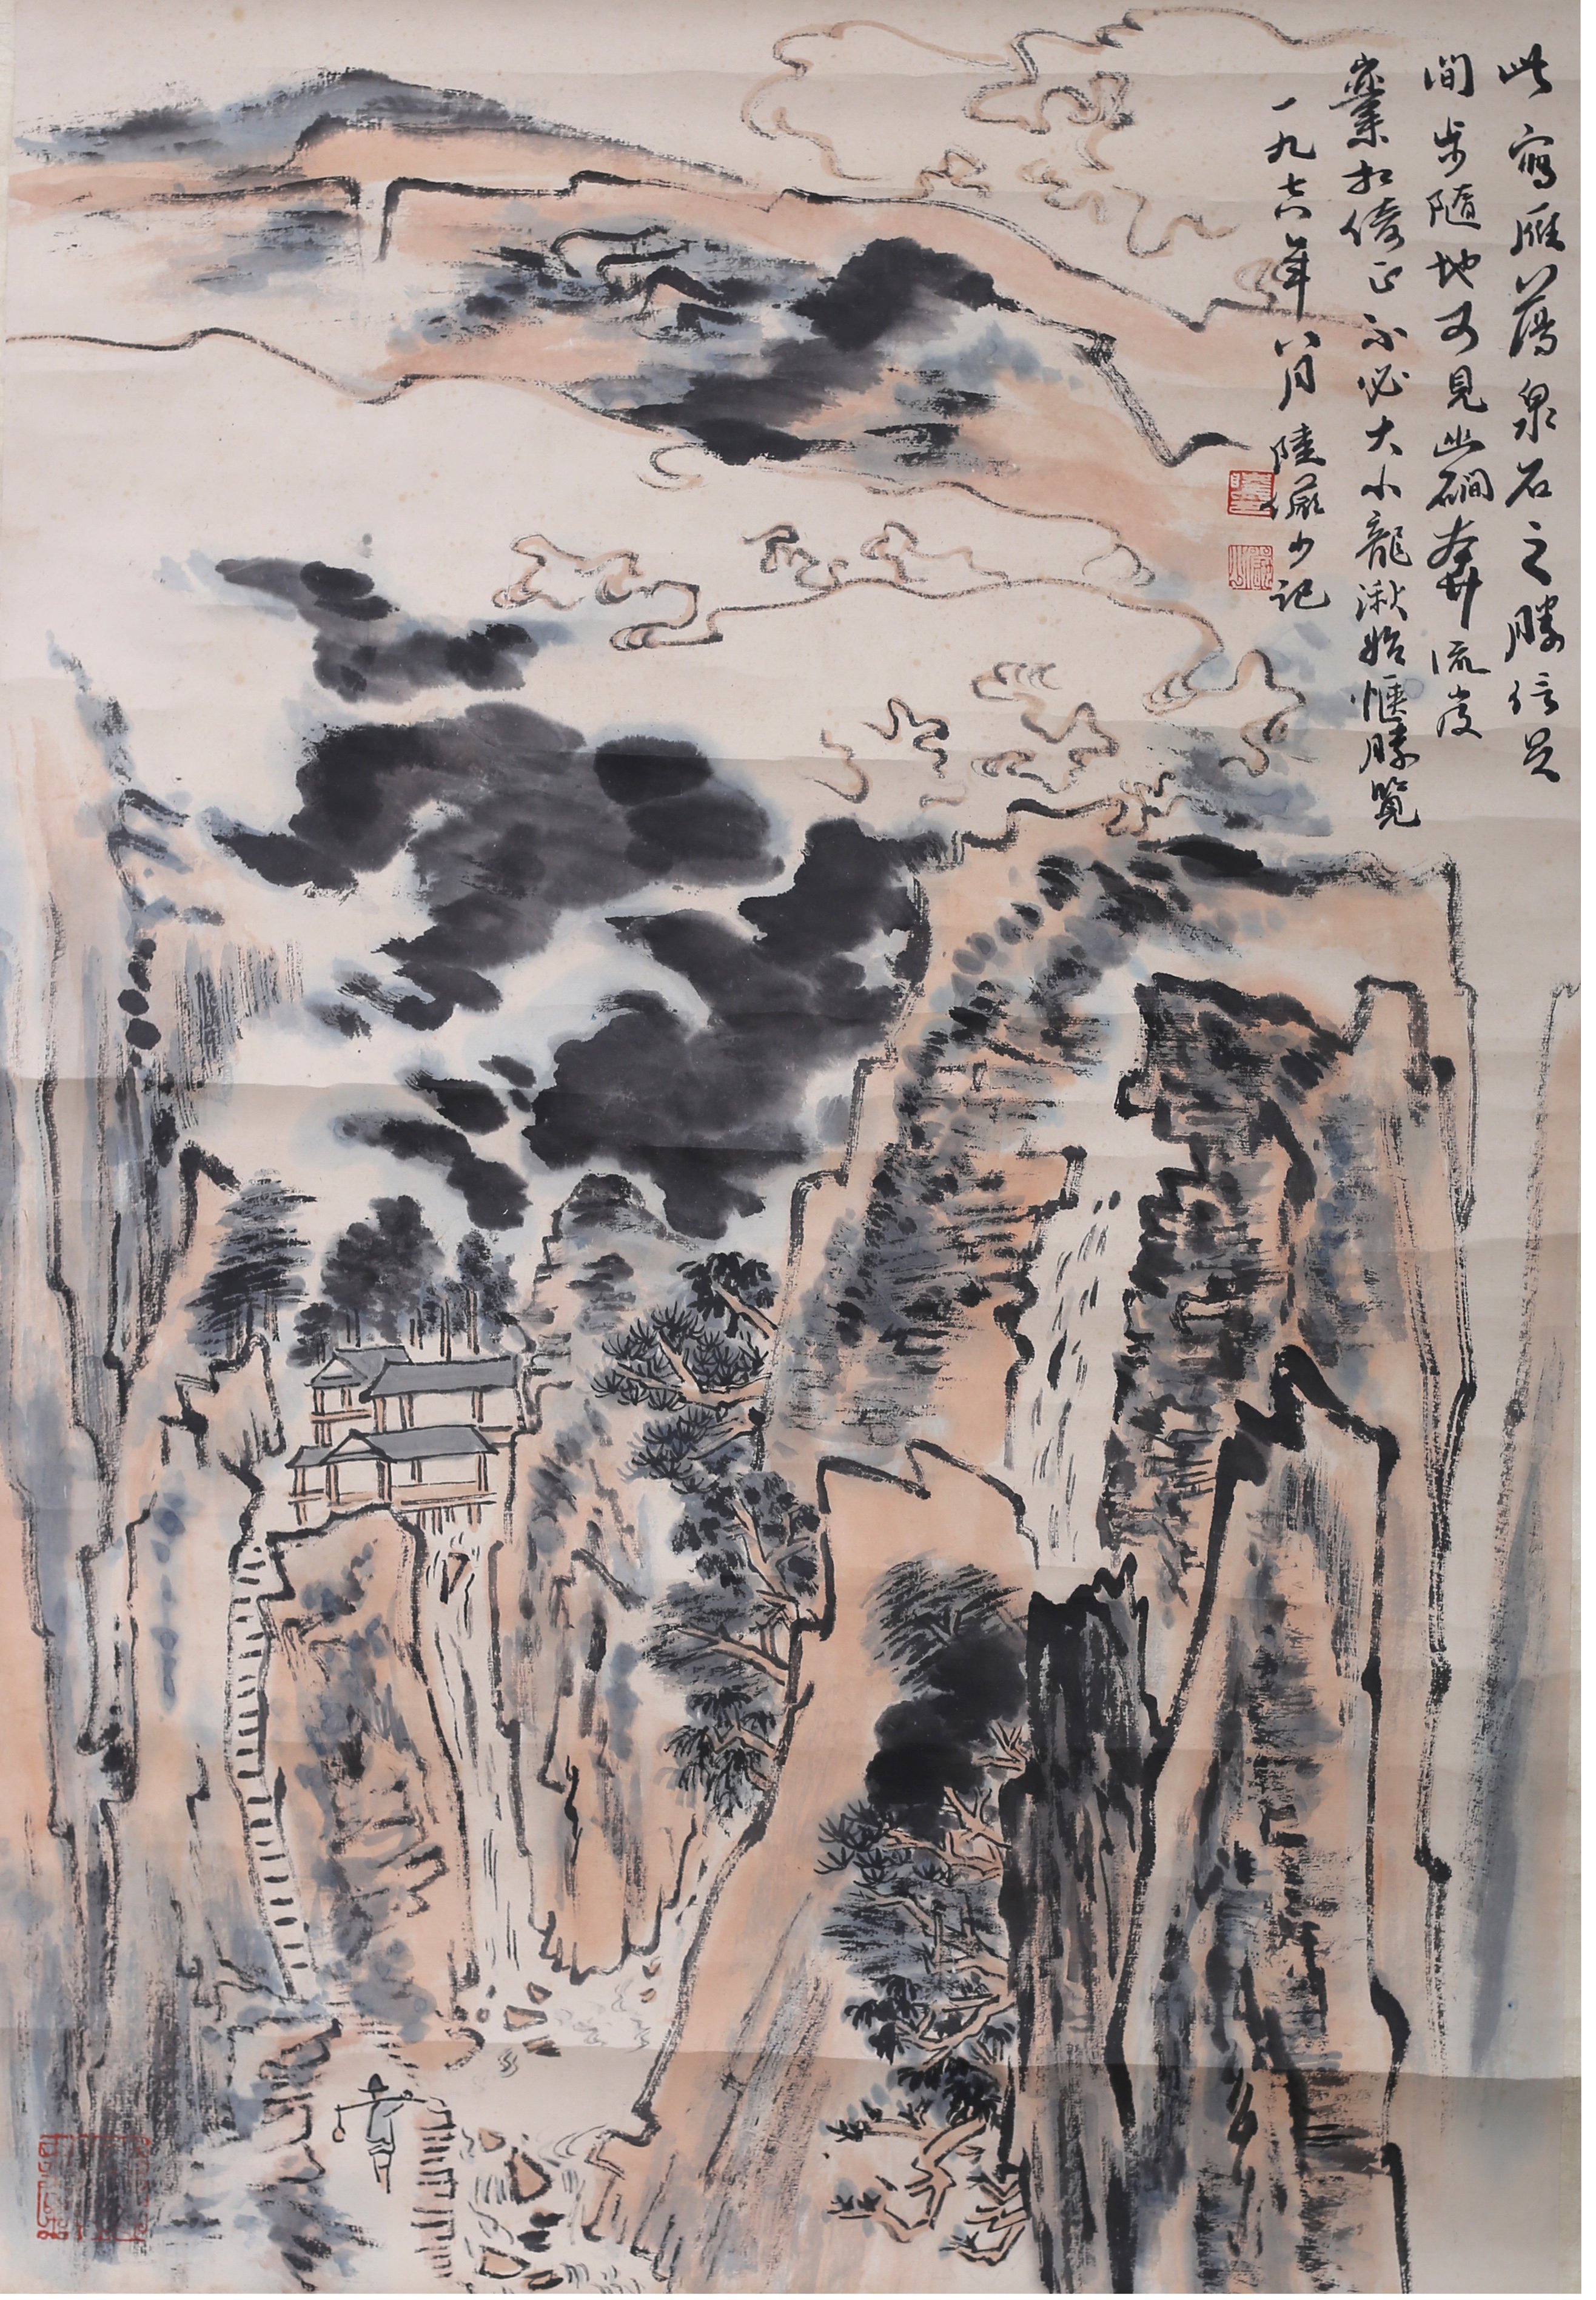 此寫雁蕩泉石之勝信足
间步隨地可見幽磵奔流崖
業相倚正不必大小龍湫始愜勝覽
一九七八年八月陸儼少記